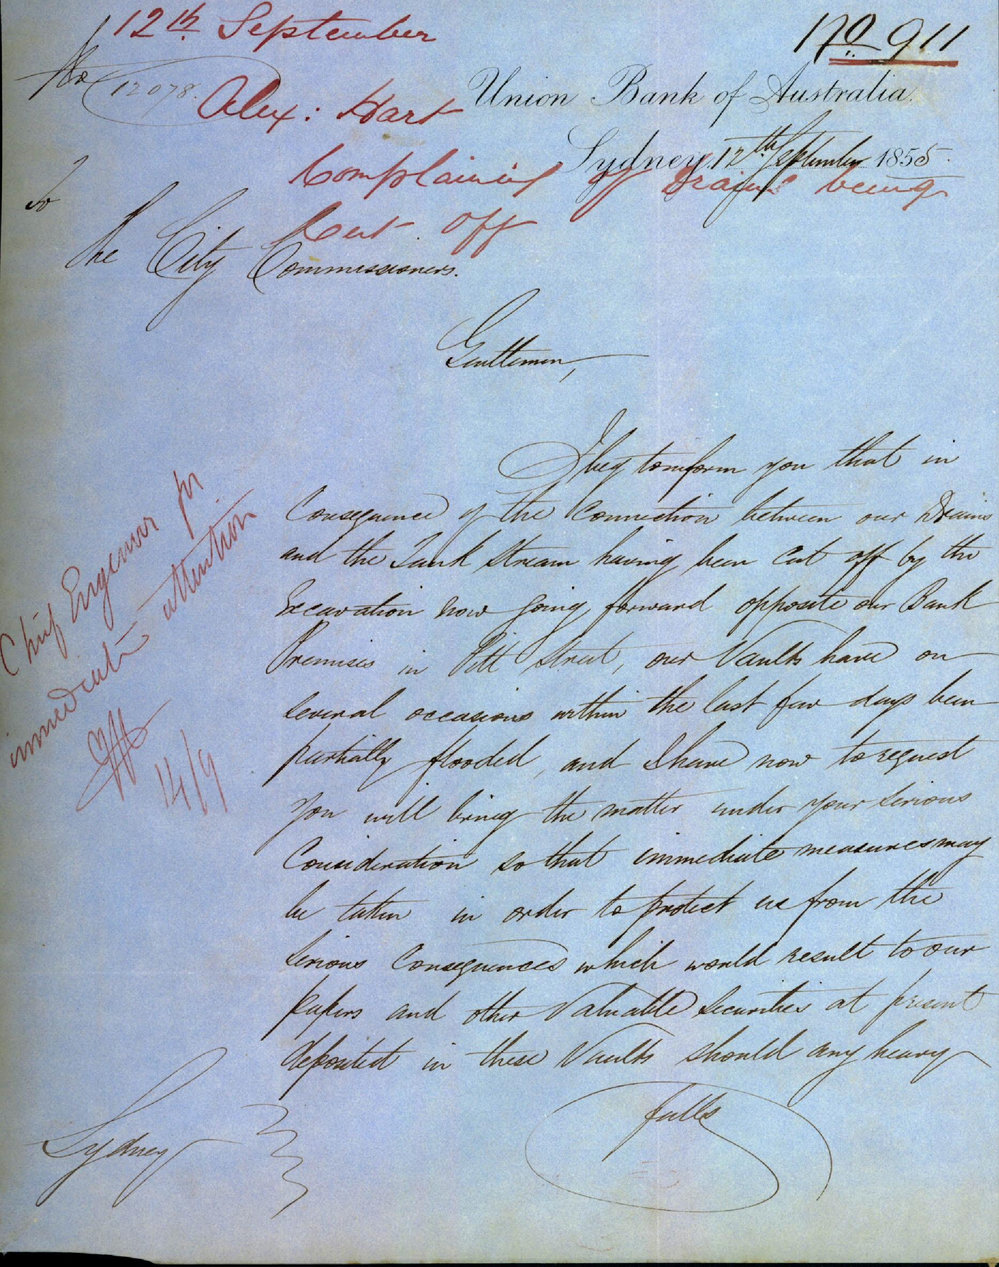 12th September
No 911
No
12078.
Alex: Hart
Union Bank of Australia.
Sydney, 12th September 1855.
Complaining of Drains being
Cut Off
To
The City Commissioners.
Gentlemen,
I beg to inform you that in
Consequence of the Connection between our Drains
and the Tank Stream having been Cut off by the
Excavation now going forward opposite our Bank
Premises in Pitt Street, our Vaults have on
several occasions within the last few days been
partially flooded, and I have now to request
you will bring the matter under your serious
Consideration so that immediate measures may
be taken in order to protect us from the
serious Consequences which would result to our
papers and other Valuable Securities at present
deposited in these Vaults should any heavy
falls
Sydney
Chief Engineer for
immediate attention
14/9